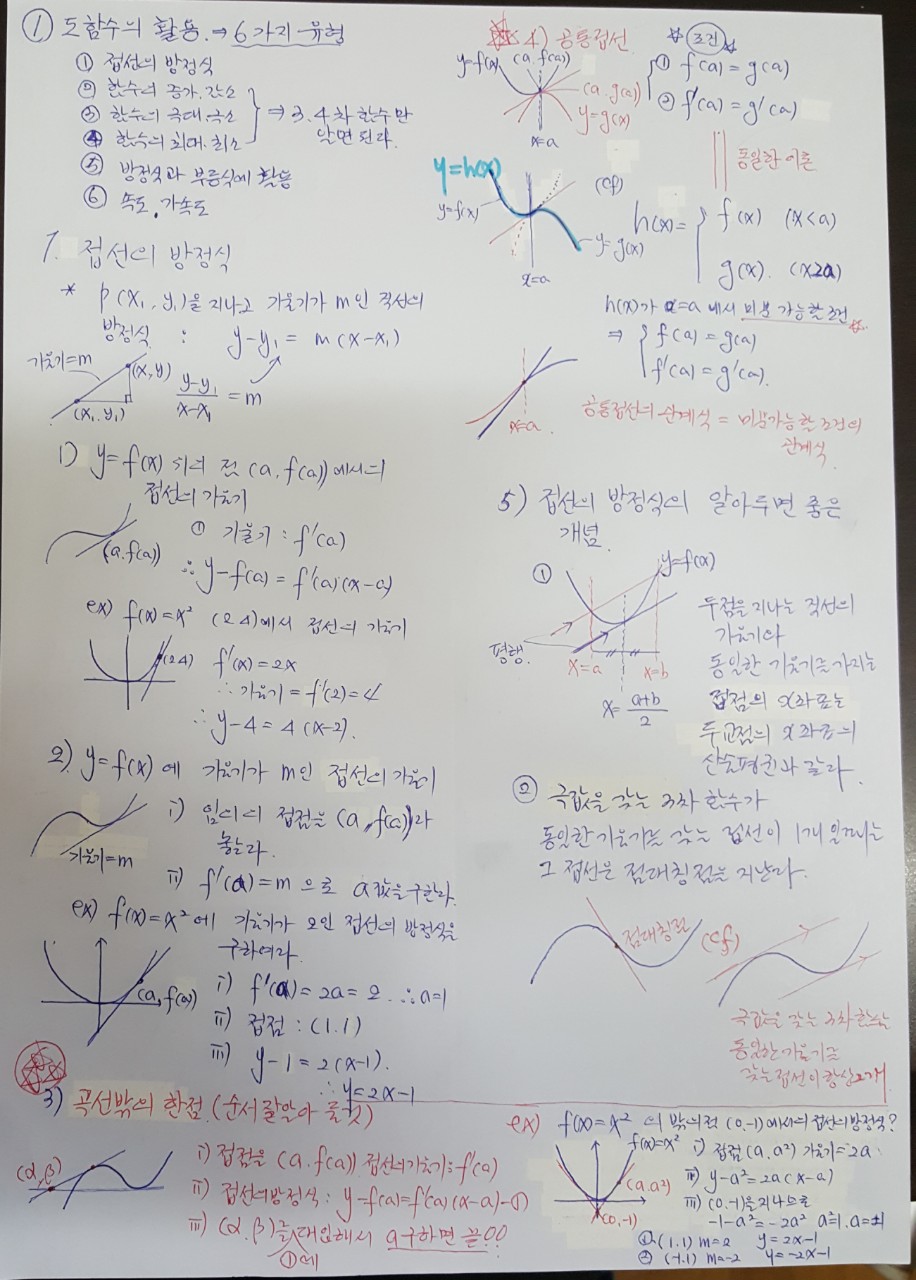 ① 도함수의 활용. ⇒ 6가지 유형
① 접선의 방정식
② 함수의 증가, 감소
③ 함수의 극대, 극소
④ 함수의 최대, 최소
⇒ 3.4차 함수만
알면 된다.
⑤ 방정식과 부등식에 활용
⑥ 속도, 가속도
1. 접선의 방정식
* P(x₁, y₁)을 지나고 기울기가 m인 직선의
방정식 : y-y₁ = m(x-x₁)
기울기=m
(x,y)
(x₁, y₁)
y-y₁/x-x₁ = m
1) y=f(x) 위의 점 (a, f(a))에서의
접선의 기울기
(a.f(a))
① 기울기 : f'(a)
∴ y-f(a) = f'(a)(x-a)
ex) f(x)=x² (2 4)에서 접선의 기울기
(2 4)
f'(x)=2x
∴ 기울기 = f'(2)=4
∴ y-4 = 4(x-2).
2) y=f(x)에 기울기가 m인 접선의 기울기
기울기=m
i) 임의의 접점을 (a, f(a))라
놓는다.
ii) f'(a)=m 으로 a값을 구한다.
ex) f(x)=x²에 기울기가 2인 접선의 방정식을
구하여라.
(a, f(a))
i) f'(a)=2a=2. ∴a=1
ii) 접점 : (1.1)
iii) y-1=2(x-1).
∴ y=2x-1
3) 곡선밖의 한점 (순서 잘 알아 둘 것)
(α, β)
i) 접점을 (a.f(a)) 접선의 기울기:f'(a)
ii) 접선의방정식 : y-f(a)=f'(a)(x-a)-①
iii) (α, β)를 대입해서 a구하면 끝00
①에
4) 공통접선
y=f(x)
(a. f(a))
(a. g(a))
y=g(x)
x=a
조건
① f(a)=g(a)
② f'(a)=g'(a)
동일한 이론
y=h(x)
y=f(x)
y=g(x)
x=a
(cf)
h(x)= f(x) (x<a)
g(x). (x≥a)
h(x)가 x=a에서 미분 가능할 조건
⇒ f(a)=g(a)
f'(a)=g'(a).
x=a
공통접선의 관계식 = 미분가능할 조건의
관계식
5) 접선의 방정식의 알아두면 좋은
개념.
①
y=f(x)
평행.
x=a
x=b
x= a+b/2
두점을 지나는 직선의
기울기와
동일한 기울기를 가지는
접점의 x좌표는
두 교점의 x좌표의
산술평균과 같다.
② 극값을 갖는 3차 함수가
동일한 기울기를 갖는 접선이 1개 일때는
그 접선은 점대칭점을 지난다.
점대칭점
(cf)
극값을 갖는 3차함수는
동일한 기울기를
갖는 접선이 항상 2개.
ex) f(x)=x² 의 밖의 점 (0,-1)에서의 접선의방정식?
f(x)=x²
(a,a²)
(0,-1)
i) 접점 (a, a²) 기울기=2a.
ii) y-a²=2a(x-a)
iii) (0,-1)을지나므로
-1-a²=-2a² a²=1. a=±1
① (1.1) m=2 y=2x-1
② (-1.1) m=-2 y=-2x-1